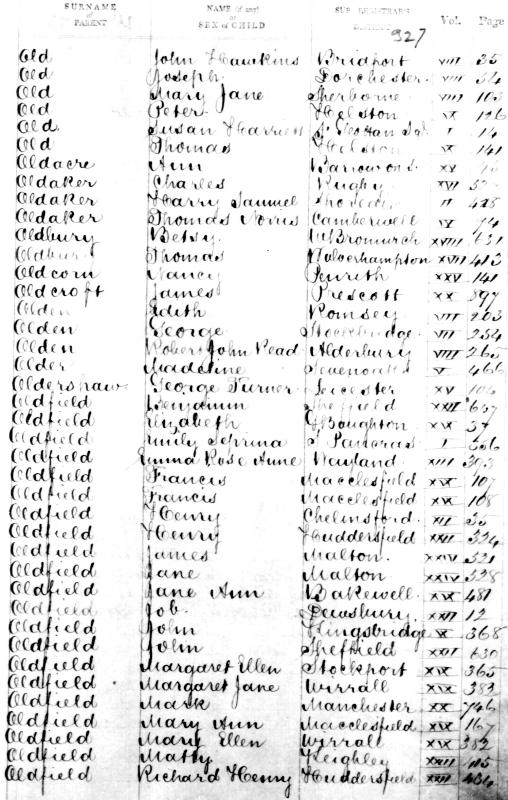 SURNAME OF PARENT NAME (if any) or SEX OF CHILD SUB REGISTRAR'S Vol. Page
927
Old John Hawkins Bridport VIII 35
Old Joseph Dorchester VIII 54
Old Mary Jane Sherborne VIII 103
Old Peter Helston IX 126
Old Susan Harriett I 14
Old Thomas Helston IX 141
Oldacre Ann XV
Oldaker Charles Rugby XVI
Oldaker Harry Samuel II 428
Oldaker Thomas Norris Camberwell IV 74
Oldbury Betsy W Bromwich XVIII 631
Oldbury Thomas Wolverhampton XVIII 413
Oldcorn Nancy Penrith XXV 141
Oldcroft James Prescott XX 897
Olden Edith Romsey VIII 203
Olden George Stockbridge VII 254
Olden Robert John Read Alderbury VIII 265
Older Madeline Sevenoaks V 466
Oldershaw George Turner Leicester XV 106
Oldfield Benjamin Sheffield XXII 657
Oldfield Elizabeth G Boughton XIX 37
Oldfield Emily S Pancras I 356
Oldfield Emma Rose Anne Wayland XIII 303
Oldfield Francis Macclesfield XIX 107
Oldfield Francis Macclesfield XIX 108
Oldfield Henry Chelmsford XII 35
Oldfield Henry Huddersfield XXII 334
Oldfield James Malton XXIV 321
Oldfield Jane Malton XXIV 328
Oldfield Jane Ann Bakewell XIX 481
Oldfield Job Dewsbury XXII 12
Oldfield John Kingsbridge IX 368
Oldfield John Sheffield XXII 630
Oldfield Margaret Ellen Stockport XIX 365
Oldfield Margaret Jane Wirrall XIX 383
Oldfield Mark Manchester XX 746
Oldfield Mary Ann Macclesfield XIX 167
Oldfield Mary Ellen Wirrall XIX 382
Oldfield Matty Keighley XXIII 115
Oldfield Richard Henry Huddersfield XXII 434